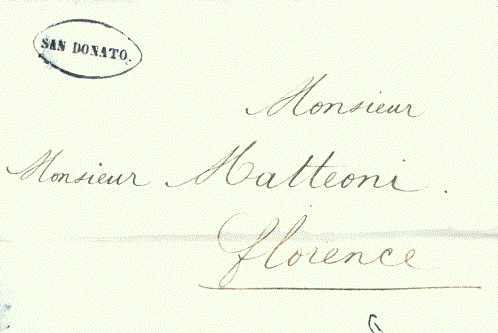 SAN DONATO.
Monsieur
Monsieur Matteoni.
Florence